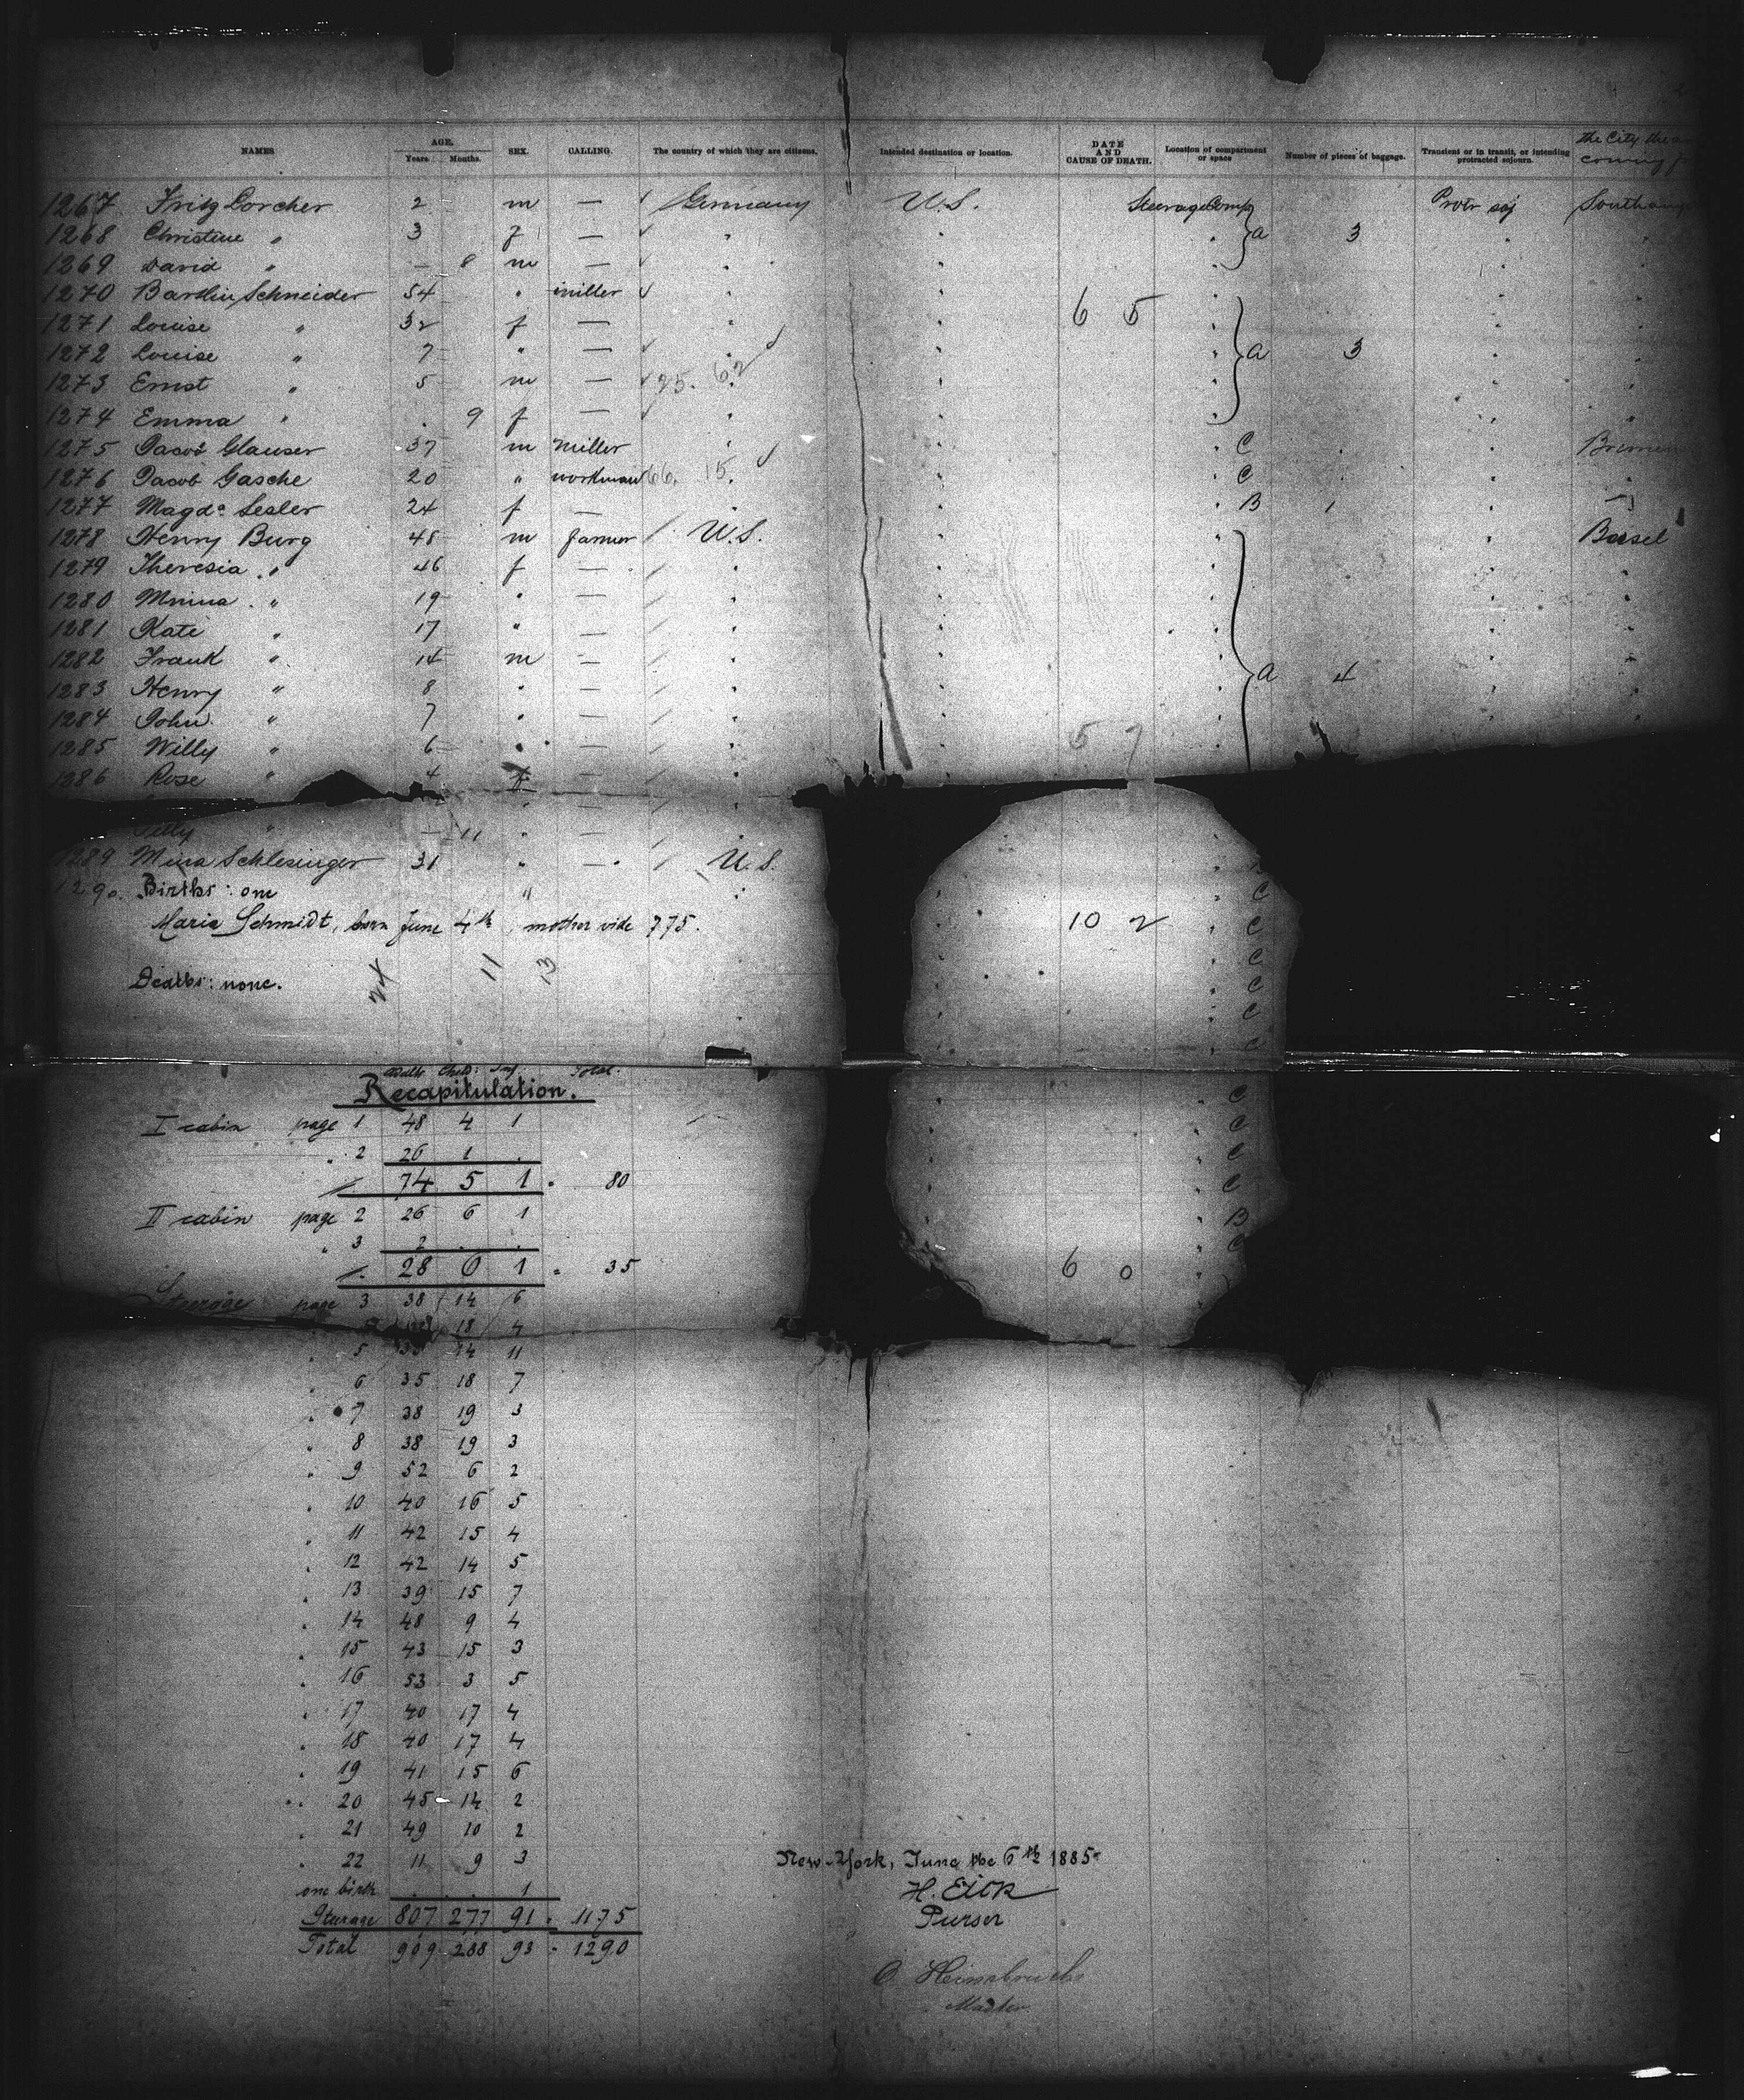 NAMES AGE. Years. Months. SEX. CALLING. The country of which they are citizens. Intended destination or location. DATE AND CAUSE OF DEATH. Location of compartment or space Number of pieces of baggage. Transient or in transit, or intending protracted sojourn. the City coming
1267 Fritz Lorcher 2 m — Germany U.S. Steerage Comp Protr soj
1268 Christine " 3 f — a 3
1269 David " — 8 m —
1270 Schneider 54 " miller
1271 Louise " 32 f — 6 5
1272 Louise " 7 " — a 3
1273 Ernst " 5 m — 25. 62
1274 Emma " 9 f —
1275 Jacob Glauser 37 m miller C
1276 Jacob Gasche 20 " workman 66. 15. C
1277 Magda Sesler 24 f — B 1
1278 Henry Burg 48 m farmer / U.S. Basel
1279 Theresia " 46 f — /
1280 Minna " 19 " — /
1281 Kate " 17 " — /
1282 Frank " 14 m — /
1283 Henry " 8 " — / a 4
1284 John " 7 " — /
1285 Willy " 6 " — / 5 7
1286 Rose " 4 f — /
" — 11 " — /
1289 Mina Schlesinger 31 " — / U.S.
1290 Births: one " C
Maria Schmidt, born June 4th, mother vide 775. 10 2 C
C
Deaths: none. 24 11 13 C
C
C
Total.
Recapitulation. C
I cabin page 1 48 4 1 C
" 2 26 1 . C
74 5 1 = 80 C
II cabin page 2 26 6 1 B
" 3 2 . . C
28 6 1 = 35 6 0
Steerage page 3 38 14 6
18 4
" 5 14 11
" 6 35 18 7
" 7 38 19 3
" 8 38 19 3
" 9 52 6 2
" 10 40 16 5
" 11 42 15 4
" 12 42 14 5
" 13 39 15 7
" 14 48 9 4
" 15 43 15 3
" 16 53 3 5
" 17 40 17 4
" 18 40 17 4
" 19 41 15 6
" 20 45 14 2
" 21 49 10 2
" 22 11 9 3
New-York, June the 6th 1885.
one birth . . 1
H. Eick
Steerage 807 277 91 = 1175
Purser
Total 909 288 93 = 1290
Master